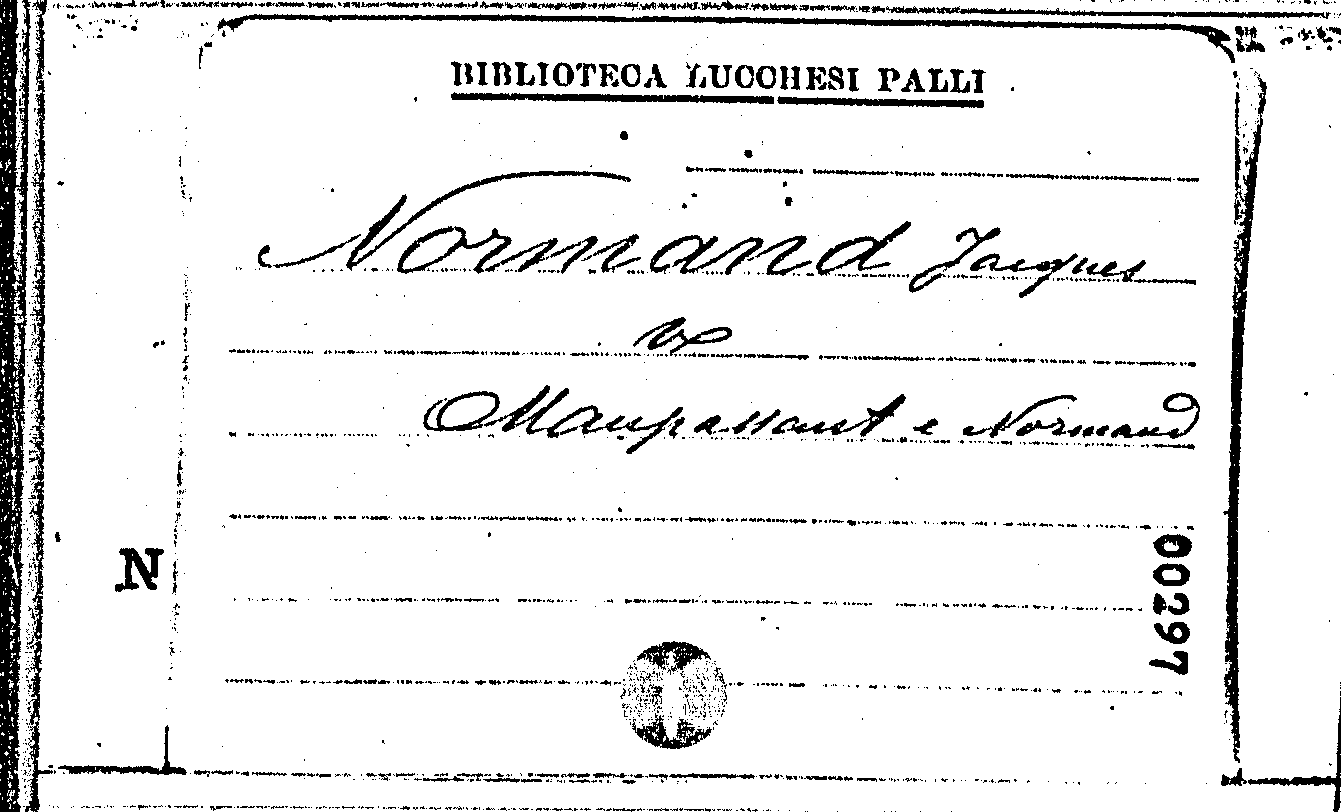 BIBLIOTECA LUCCHESI PALLI
Normand Jacques
Maupassant e Normand
N
00297